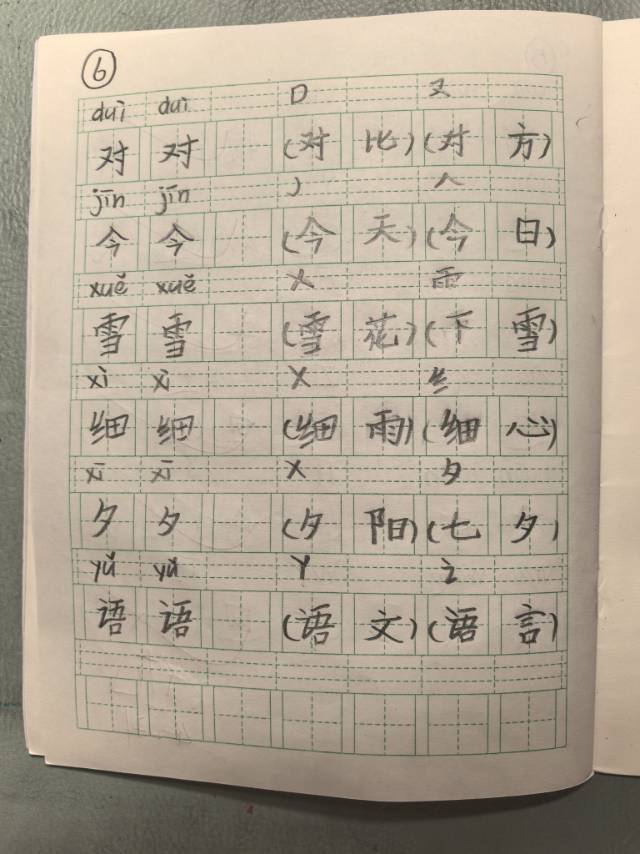 6
duì duì D 又
对 对 (对 比) (对 方)
jīn jīn J 人
今 今 (今 天) (今 日)
xuě xuě X 雨
雪 雪 (雪 花) (下 雪)
xì xì X 纟
细 细 (细 雨) (细 心)
xī xī X 夕
夕 夕 (夕 阳) (七 夕)
yǔ yǔ Y 讠
语 语 (语 文) (语 言)